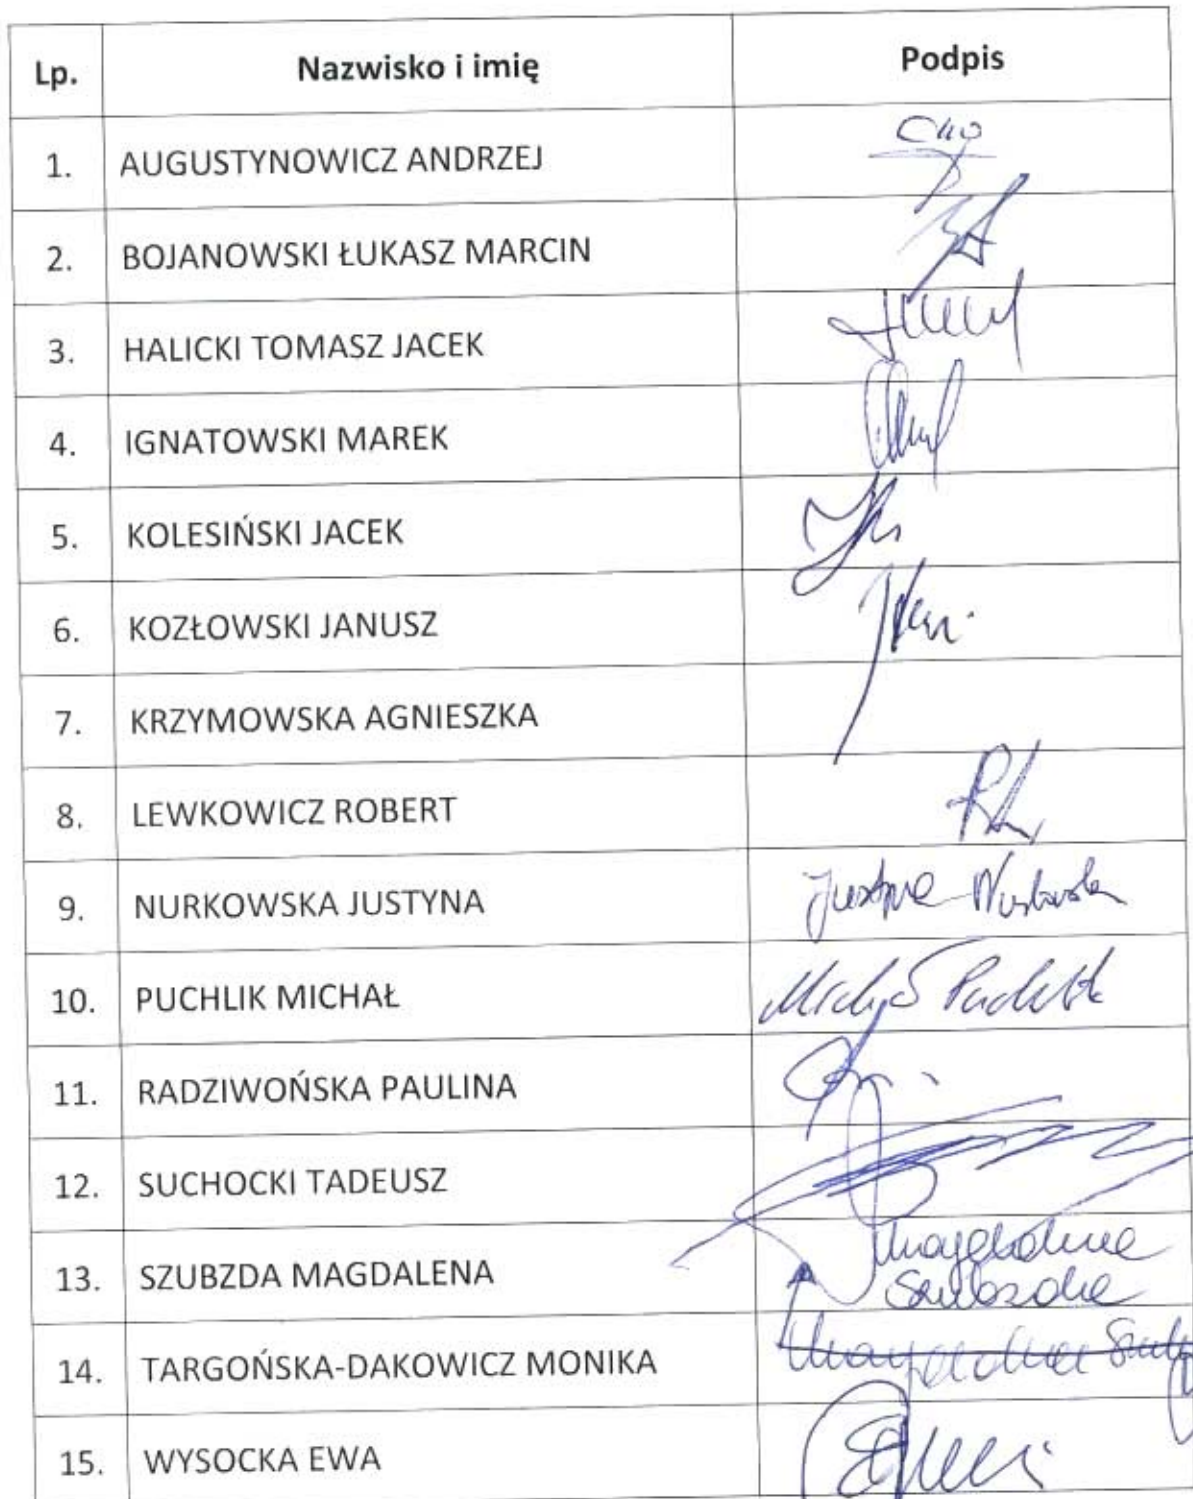 Lp. Nazwisko i imię Podpis
1. AUGUSTYNOWICZ ANDRZEJ
2. BOJANOWSKI ŁUKASZ MARCIN
3. HALICKI TOMASZ JACEK
4. IGNATOWSKI MAREK
5. KOLESIŃSKI JACEK
6. KOZŁOWSKI JANUSZ
7. KRZYMOWSKA AGNIESZKA
8. LEWKOWICZ ROBERT
9. NURKOWSKA JUSTYNA Justyna Nurkowska
10. PUCHLIK MICHAŁ Michał Puchlik
11. RADZIWOŃSKA PAULINA
12. SUCHOCKI TADEUSZ
13. SZUBZDA MAGDALENA Magdalena
Szubzda
14. TARGOŃSKA-DAKOWICZ MONIKA Magdalena
15. WYSOCKA EWA